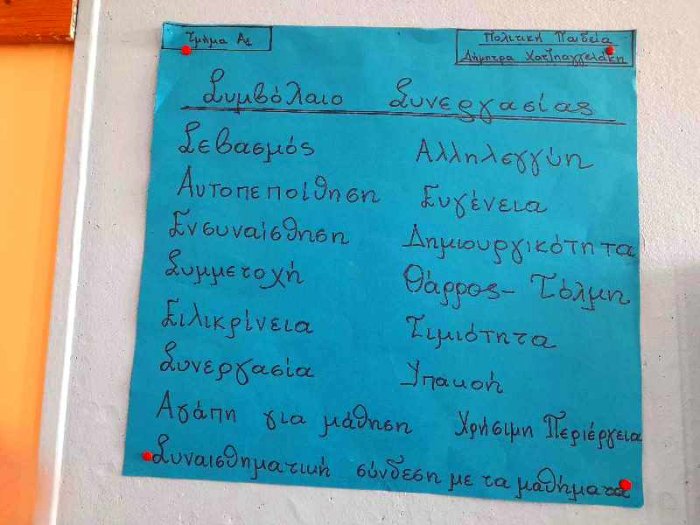 Τμήμα Α1
Πολιτική Παιδεία
Δήμητρα Χατζηαγγελάκη
Συμβόλαιο Συνεργασίας
Σεβασμός Αλληλεγγύη
Αυτοπεποίθηση Ευγένεια
Ενσυναίσθηση Δημιουργικότητα
Συμμετοχή Θάρρος - Τόλμη
Ειλικρίνεια Τιμιότητα
Συνεργασία Υπακοή
Αγάπη για μάθηση Χρήσιμη Περιέργεια
Συναισθηματική σύνδεση με τα μαθήματα